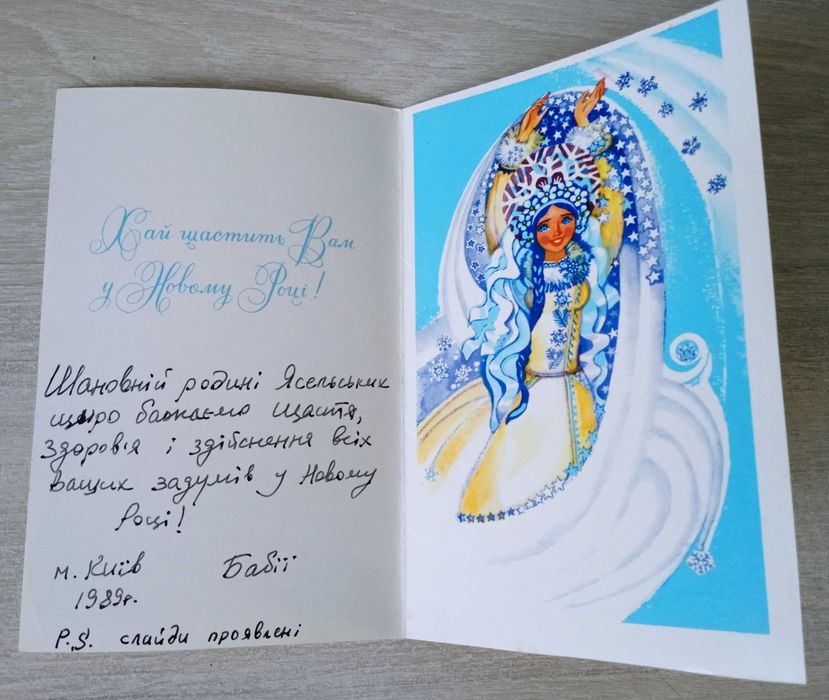 Хай щастить Вам
у Новому Році!
Шановній родині Ясельських
щиро бажаємо щастя,
здоров'я і здійснення всіх
ваших задумів у Новому
Році!
м. Київ Бабії
1989р.
P.S. слайди проявлені